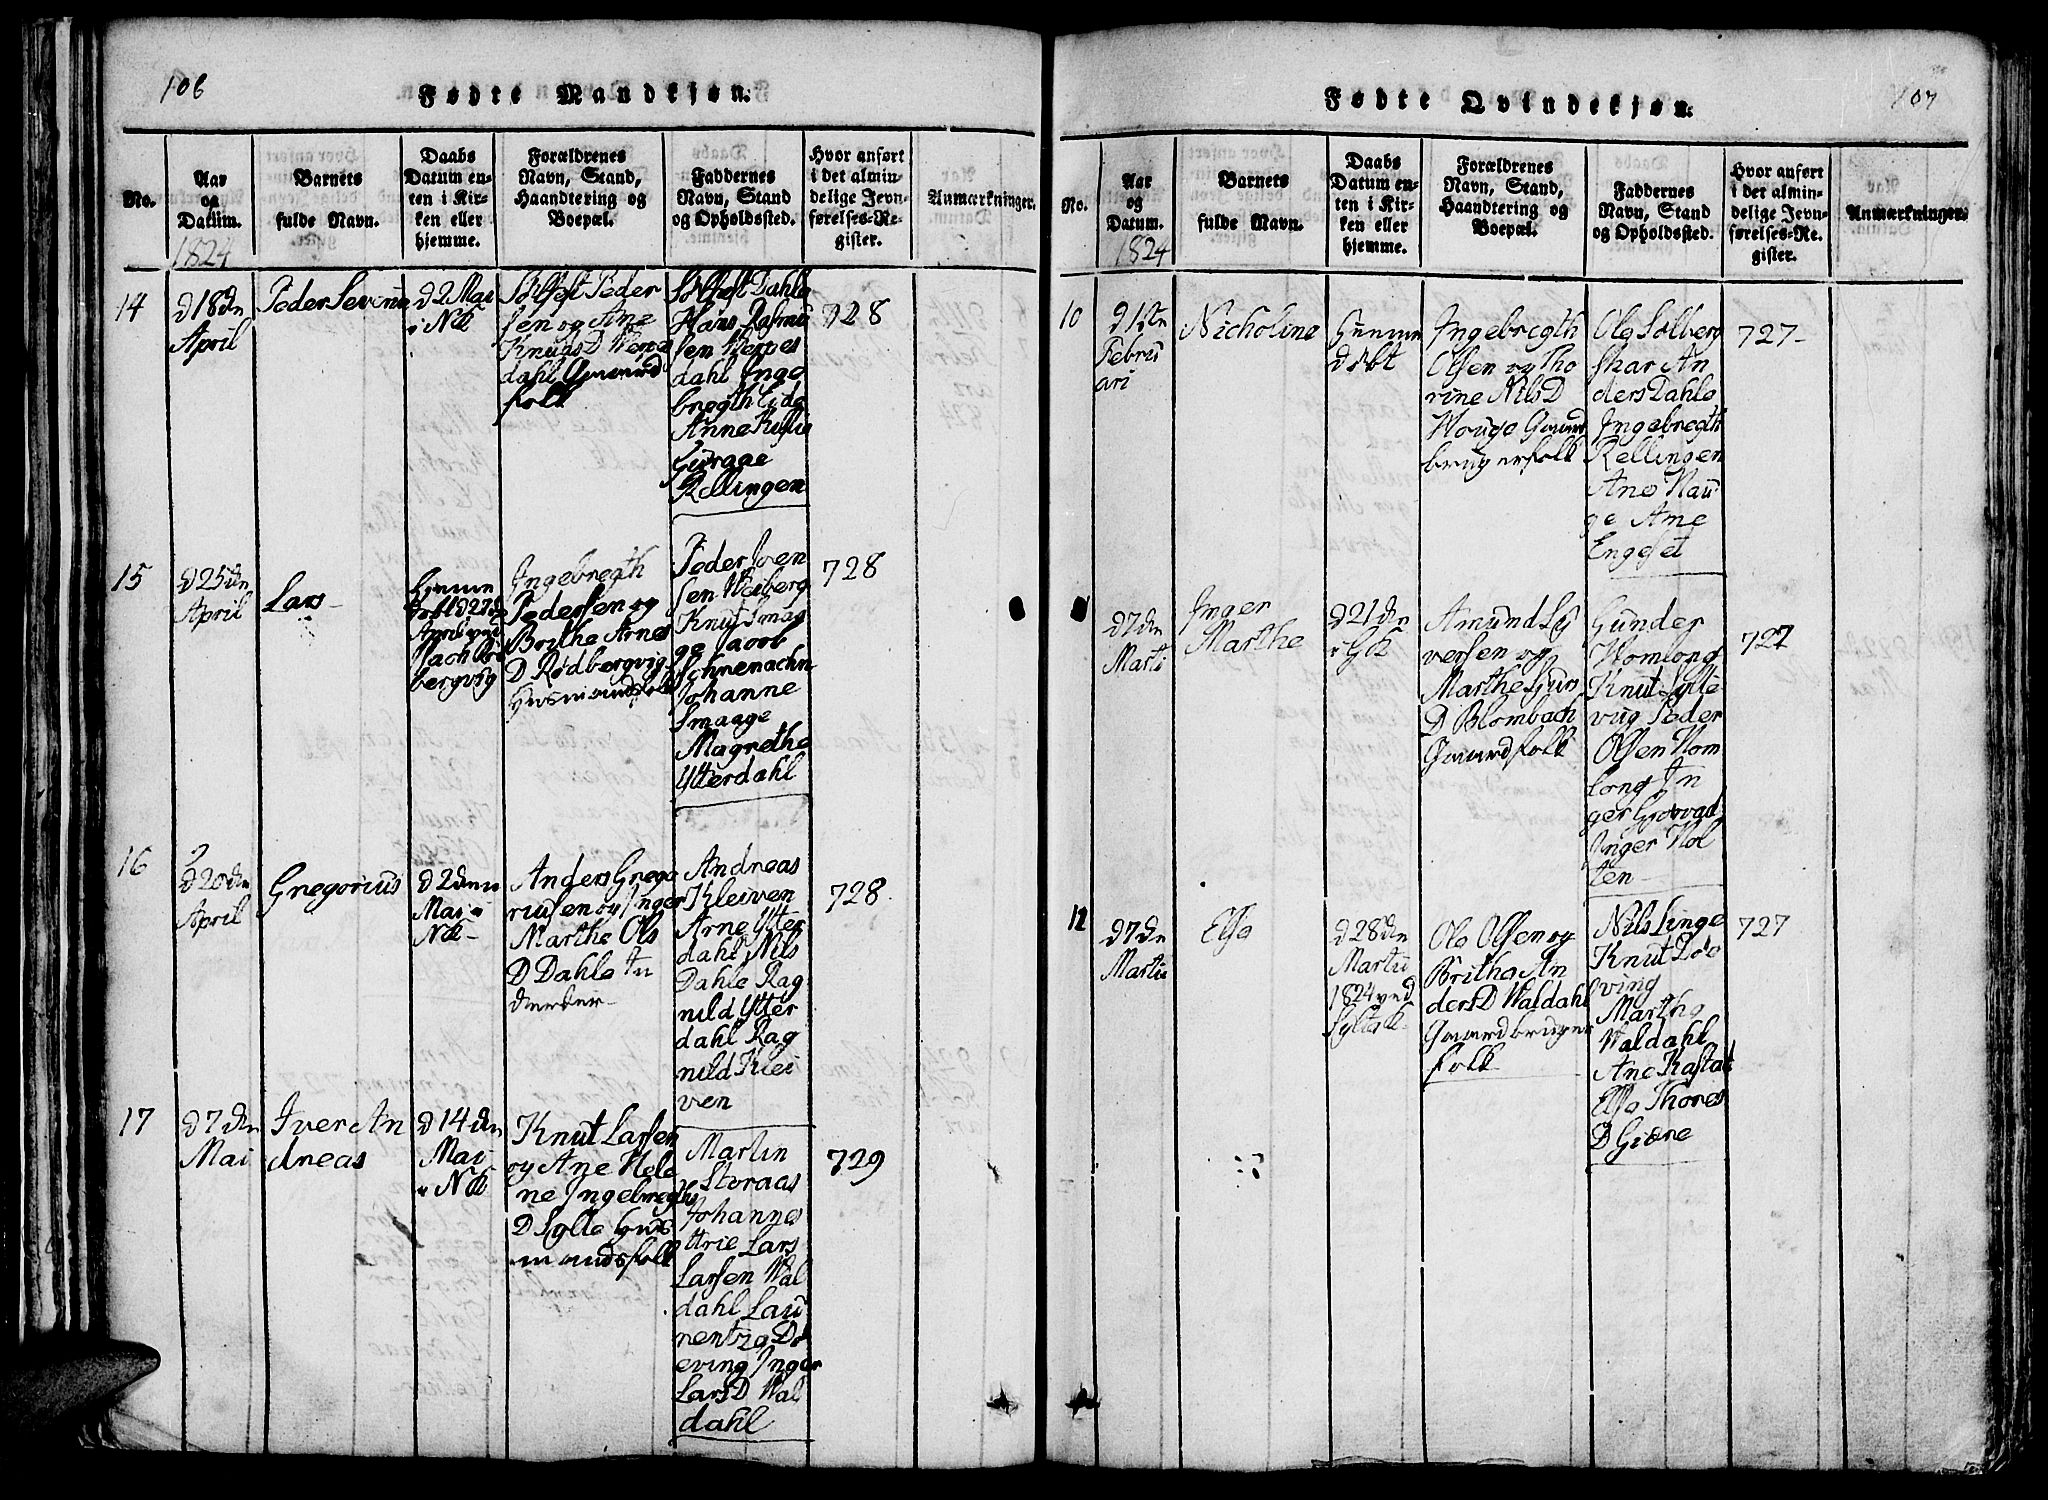 106
Fødte Mandkjøn.
No.
Aar
og
Datum.
Barnets
fulde Navn.
Daabs
Datum en-
ten i Kir-
ken eller
hjemme.
Forældrenes
Navn, Stand,
Haandtering og
Boepæl.
Faddernes
Navn, Stand
og Opholdssted.
Hvor anført
i det almin-
delige Jevn-
førelses-Re-
gister.
Anmærkninger.
1824
14
d 18 dn
April
Peder Severin
d 2 Mai
i NK
Sølfest Peder
sen og Ane
Knuds D Werpe
dahl Gaard
folk
Sølfest Dahle
Hans Rasmu
sen Werpes
dahl Inge
bregth Lide
Anne
Rellingen
728
15
d 25 dn
April
Lars
hiemme
døbt d 27 dn
April ved
bergvig
Ingebregth
Pedersen og
Brithe Arnes
D Rødbergvig
Huusmandsfolk
Peder Joen
sen Weiberg
Knut Smaa
ge Jacob
Johanne
Smaage
Magrethe
Ytterdahl
728
16
d 20 dn
April
Gregorius
d 2 den
Mai i
NK
Anders Grego
riusen og Inger
Marthe Ols
D Dahle In
derster
Andreas
Kleiven
Arne Ytter
dahl Nils
Dahle Rag
nild Ytter
dahl Rag
nild Klei
ven
728
17
d 7 den
Mai
Iver An
dreas
d 14 den
Mai
i NK
Knut Larsen
og Ane Hele
ne Ingebregths
D Sylte Huus
mandsfolk
Martin
Storaas
Johannes
Lars
Larsen Wal
dahl Lau
rentze Dø
eving Inger
Lars D Wal
dahl
729
107
Fødte Qvindekjøn.
No.
Aar
og
Datum.
Barnets
fulde Navn.
Daabs
Datum en-
ten i Kir-
ken eller
hjemme.
Forældrenes
Navn, Stand,
Haandtering og
Boepæl.
Faddernes
Navn, Stand
og Opholdssted.
Hvor anført
i det almin-
delige Jevn-
førelses-Re-
gister.
Anmærkninger.
1824
10
d 1ste
Febru
ari
Nicholine
hiemme
døbt
Ingebregth
Olsen og Tho
rine Nils D
Houge Gaard
brugerfolk
Ole Solberg
skar An
ders Dahle
Ingebregth
Rellingen
Ane Hau
ge Ane
Engeset
727
d 7 dn
Marti
Inger
Marthe
d 21 dn
Amund Sy
versen og
Marthe Siurs
D Blombach
Gaardfolk
Gunder
Homlong
Knut Sylte
vug Peder
Olsen Hom
long In
ger Grovvad
Inger Hol
ten
727
12
d 7 dn
Martii
Else
d 28 dn
Martii
1824 ved
Sylte K
Ole Olsen og
Brithe An
ders D Waldahl
Gaardbruger
folk
Nils Linge
Knut Døe
ving
Marthe
Waldahl
Ane Kastad
Else Thores
D Giære
727